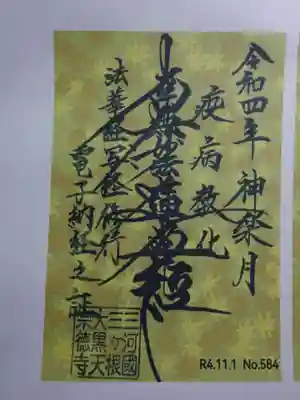 令和四年神楽月
疫病教化
南無妙法蓮華經
法華経写経修行
電子納経之証
三河國
三ヶ根
大黒天
宗徳寺
R4.11.1 No.584